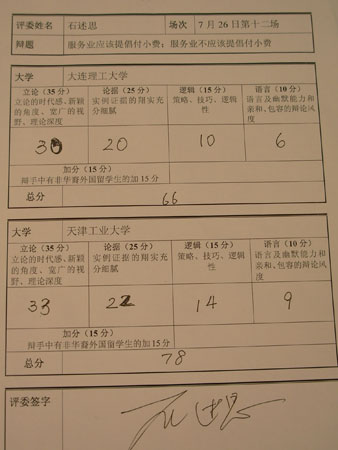 评委姓名 石述思 场次 7月26日第十二场
辩题 服务业应该提倡付小费；服务业不应该提倡付小费
大学 大连理工大学
立论（35分） 论据（25分） 逻辑（15分） 语言（10分）
立论的时代感、新颖 实例证据的翔实充 策略、技巧、逻辑 语言及幽默能力和
的角度、宽广的视 分细腻 性 亲和、包容的辩论风
野、理论深度 度
30 20 10 6
加分（15分）
辩手中有非华裔外国留学生的加15分
总分 66
大学 天津工业大学
立论（35分） 论据（25分） 逻辑（15分） 语言（10分）
立论的时代感、新颖 实例证据的翔实充 策略、技巧、逻辑 语言及幽默能力和
的角度、宽广的视 分细腻 性 亲和、包容的辩论风
野、理论深度 度
33 22 14 9
加分（15分）
辩手中有非华裔外国留学生的加15分
总分 78
评委签字 石述思